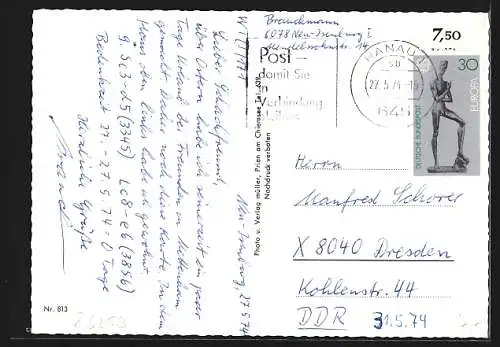 Brauckmann
6078 Neu-Isenburg I
Mendelssohnstr. 14
7,50
Post –
damit Sie
in
Verbindung
HANAU
27.5.74
645
30
EUROPA
DEUTSCHE BUNDESPOST
Herrn
Manfred Schorer
X 8040 Dresden
Kohlenstr. 44
DDR
31.5.74
WT/1/181
Neu-Isenburg, 27.5.74
Lieber Schachfreund,
über Ostern habe ich seinerzeit ein paar
Tage Urlaub bei Freunden in
gemacht. Daher noch diese Karte. In dem
Haus oben links habe ich gewohnt.
9. 53-d5 (3345) Lc8-e6 (3856)
Bedenkzeit 27.-27.5.74 = 0 Tage
Herzliche Grüße
Photo u. Verlag müller, Prien am Chiemsee Tel. 638
Nachdruck verboten
Nr. 813